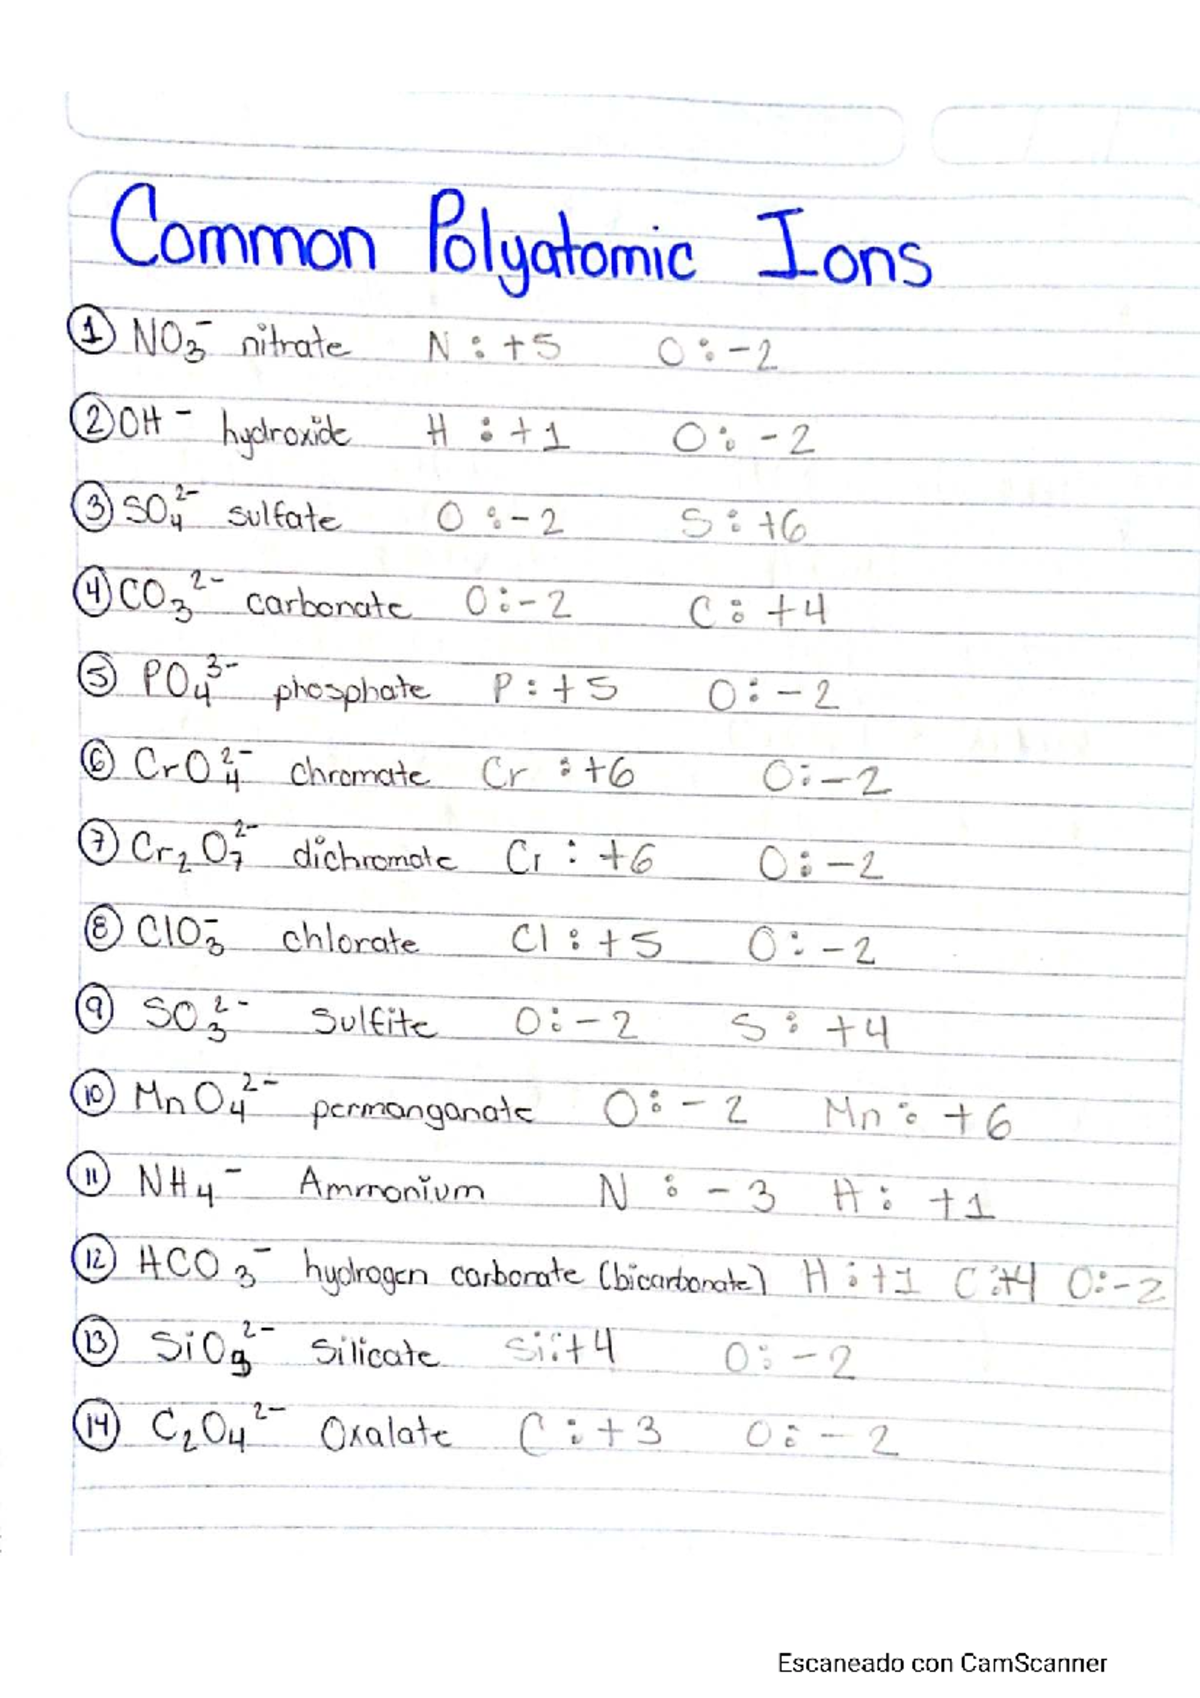 Common Polyatomic Ions
① NO₃⁻ nitrate N: +5 O: -2
② OH⁻ hydroxide H: +1 O: -2
③ SO₄²⁻ sulfate O: -2 S: +6
④ CO₃²⁻ carbonate O: -2 C: +4
⑤ PO₄³⁻ phosphate P: +5 O: -2
⑥ CrO₄²⁻ chromate Cr: +6 O: -2
⑦ Cr₂O₇²⁻ dichromate Cr: +6 O: -2
⑧ ClO₃⁻ chlorate Cl: +5 O: -2
⑨ SO₃²⁻ Sulfite O: -2 S: +4
⑩ MnO₄²⁻ permanganate O: -2 Mn: +6
⑪ NH₄⁻ Ammonium N: -3 H: +1
⑫ HCO₃⁻ hydrogen carbonate (bicarbonate) H: +1 C: +4 O: -2
⑬ SiO₃²⁻ Silicate Si: +4 O: -2
⑭ C₂O₄²⁻ Oxalate C: +3 O: -2
Escaneado con CamScanner